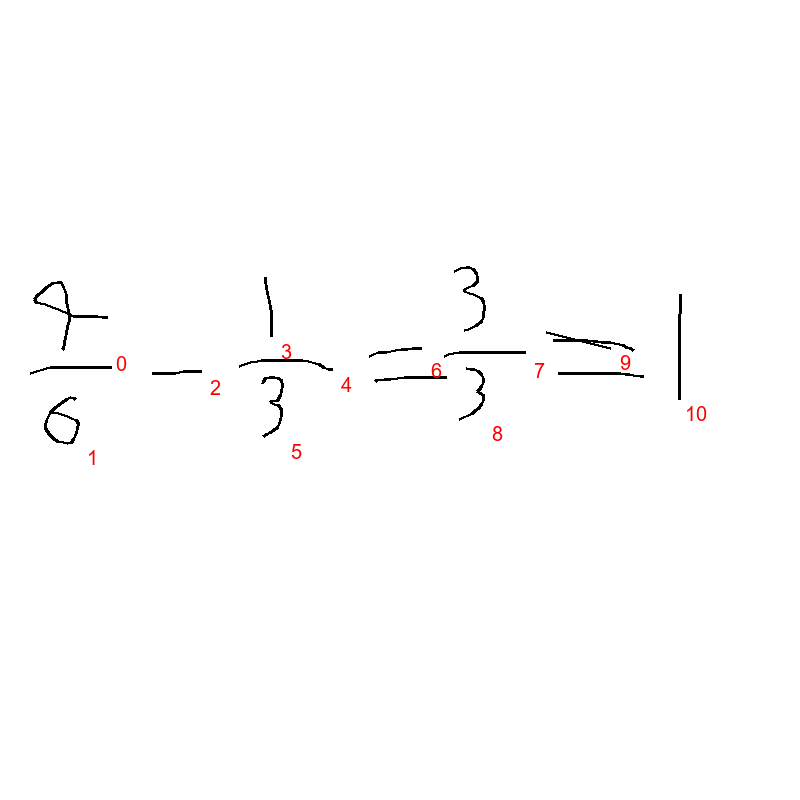 4/6 - 1/3 = 3/3 = 1
0 1 2 3 4 5 6 7 8 9 10